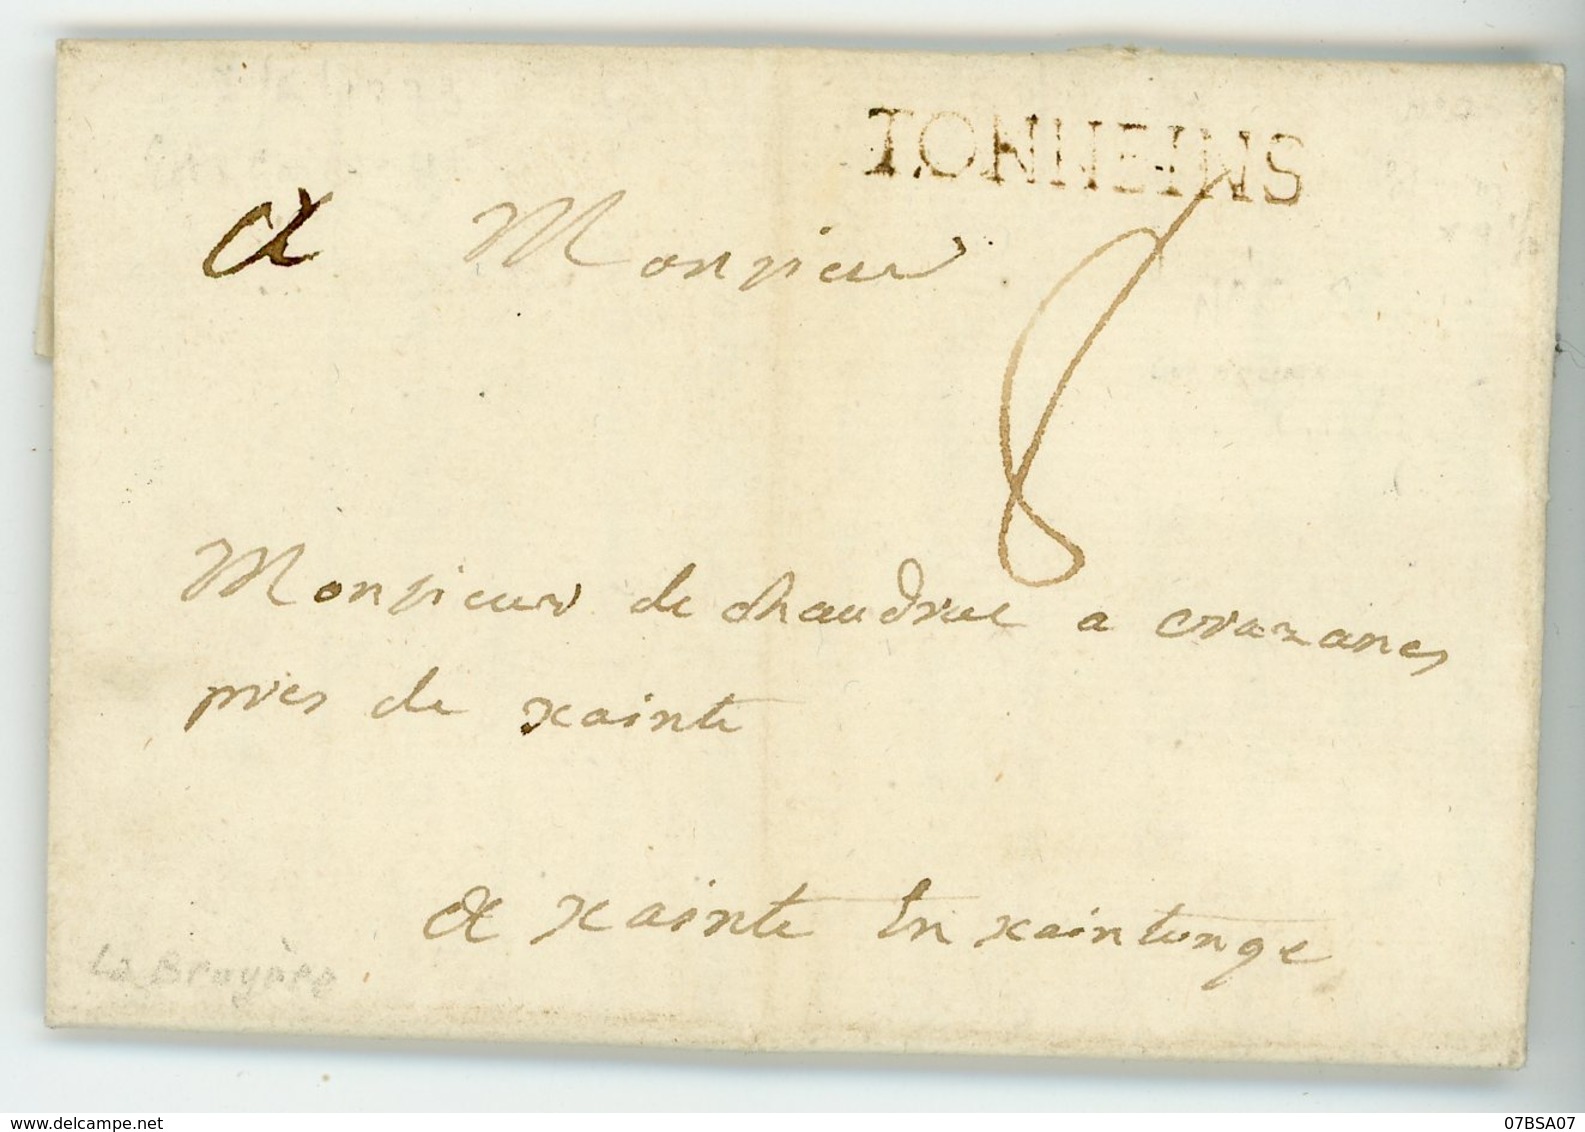 TONNEINS
A Monsieur
8
Monsieur de chaudruc a crazanes
pres de xainte
A xainte En xaintonge
La Bruyère
www.delcampe.net
07BSA07